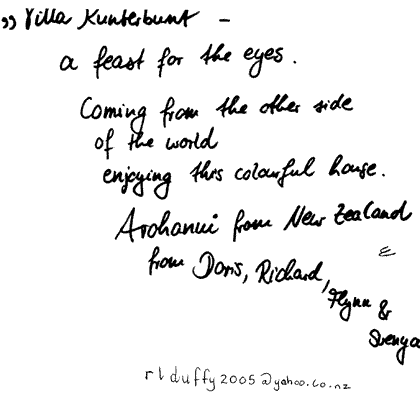 „Villa Kunterbunt –
a feast for the eyes.
Coming from the other side
of the world
enjoying this colourful house.
Arohanui from New Zealand
from Doris, Richard,
Flynn &
Svenya
rlduffy2005@yahoo.co.nz